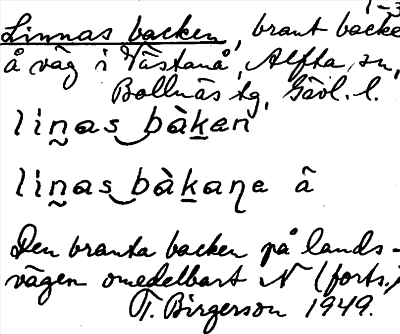 1-3
Linnas backen, brant backe
å väg i Västanå, Alfta sn,
Bollnäs tg, Gävl. l.
lin̰as‿bàk̲en
lin̰as‿bàk̲aŋe â
Den branta backen på lands-
vägen omedelbart N (forts.)
T. Birgerson 1949.